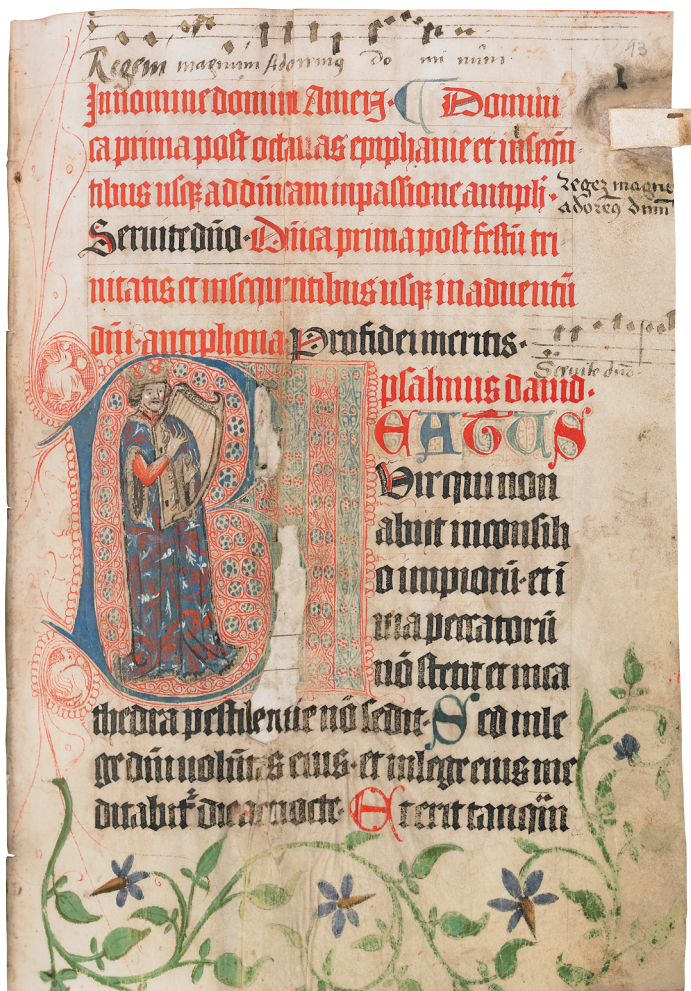 13
Regem magnum Adoremus do mi num
In nomine domini Amen. Domini
ca prima post octauas epiphanie et inseqn
tibus usqz ad dn̄icam in passione antiph̄.
regez magnu
adorez dnm
Seruite dn̄o. Dn̄ica prima post festū tri
nitatis et insequentibus usqz in aduentū
dn̄i. antiphona. Pro fidei meritis.
Seruite dn̄o.
psalmus dauid.
BEATUS
Vir qui non
abiit in consili
o impiorū. et ī
uia peccatorū
nō stetit et in ca
thedra pestilentie nō sedit. Sed in le
ge dn̄i uolūtas eius. et in lege eius me
ditabit̄ᷣ die ac nocte. Et erit tanq̄m